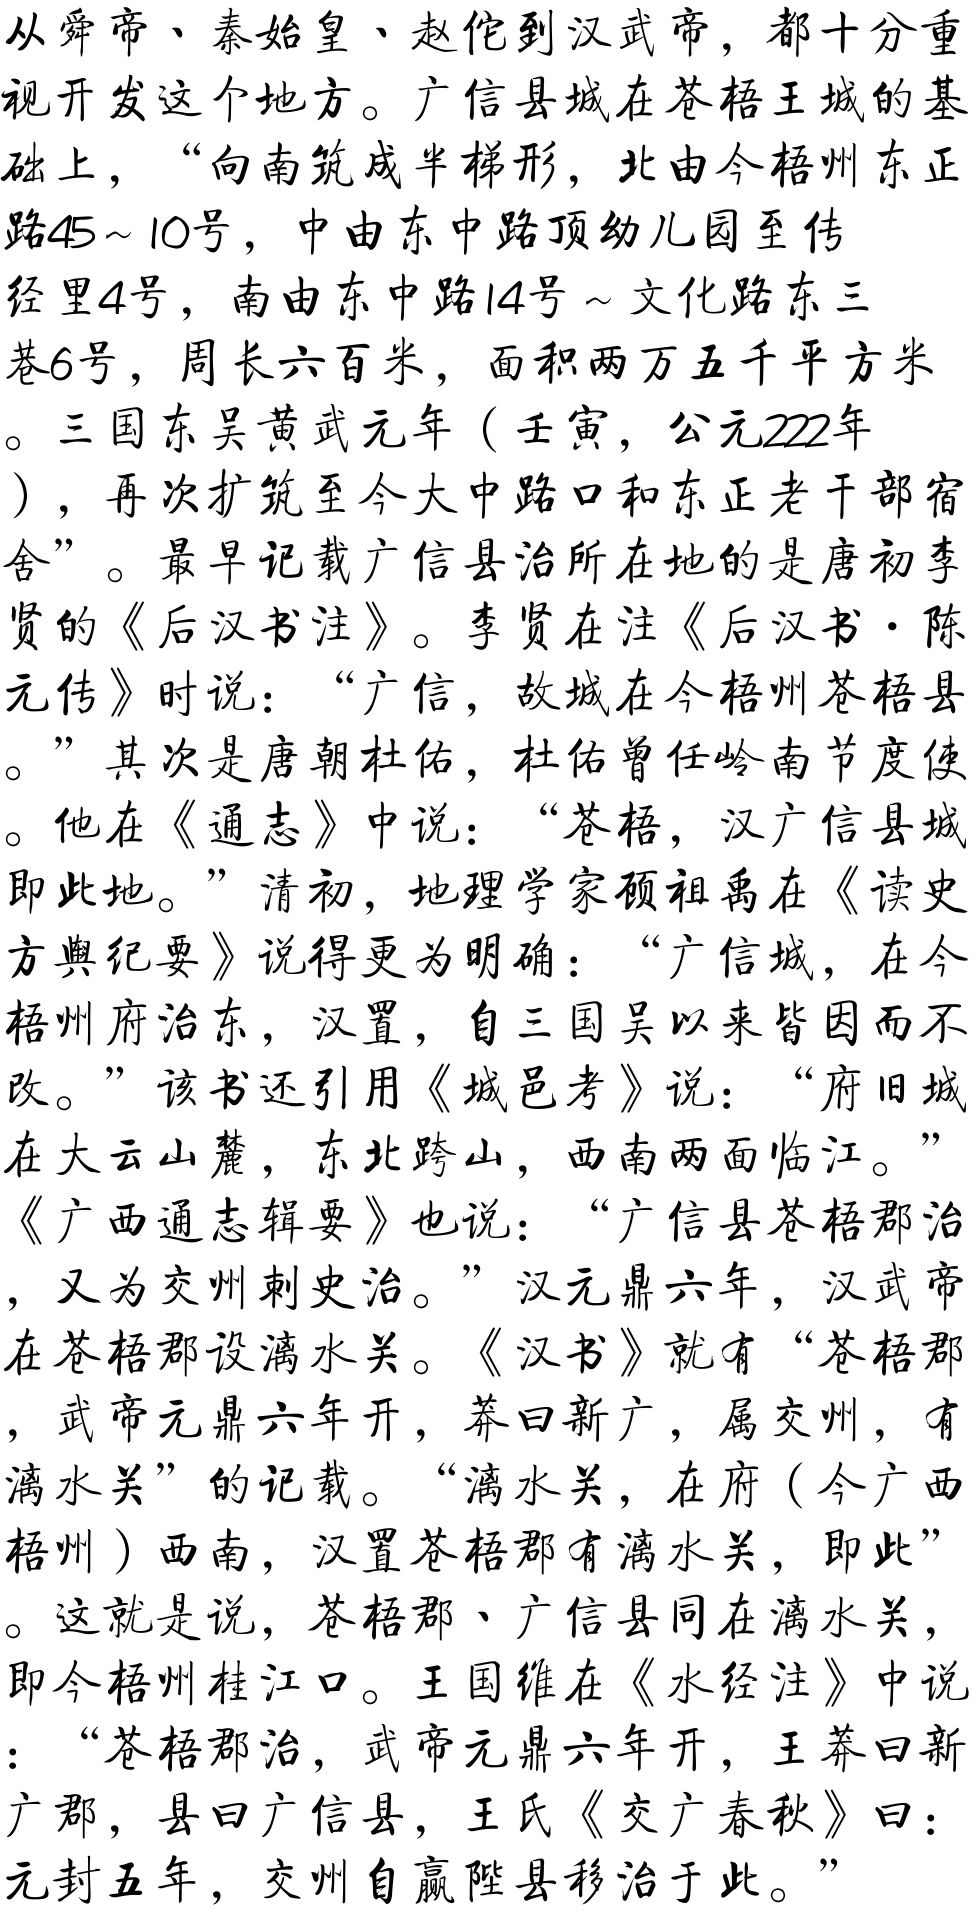 从舜帝、秦始皇、赵佗到汉武帝，都十分重
视开发这个地方。广信县城在苍梧王城的基
础上，“向南筑成半梯形，北由今梧州东正
路45~10号，中由东中路顶幼儿园至传
经里4号，南由东中路14号~文化路东三
巷6号，周长六百米，面积两万五千平方米
。三国东吴黄武元年（壬寅，公元222年
），再次扩筑至今大中路口和东正老干部宿
舍”。最早记载广信县治所在地的是唐初李
贤的《后汉书注》。李贤在注《后汉书·陈
元传》时说：“广信，故城在今梧州苍梧县
。”其次是唐朝杜佑，杜佑曾任岭南节度使
。他在《通志》中说：“苍梧，汉广信县城
即此地。”清初，地理学家顾祖禹在《读史
方舆纪要》说得更为明确：“广信城，在今
梧州府治东，汉置，自三国吴以来皆因而不
改。”该书还引用《城邑考》说：“府旧城
在大云山麓，东北跨山，西南两面临江。”
《广西通志辑要》也说：“广信县苍梧郡治
，又为交州刺史治。”汉元鼎六年，汉武帝
在苍梧郡设漓水关。《汉书》就有“苍梧郡
，武帝元鼎六年开，莽曰新广，属交州，有
漓水关”的记载。“漓水关，在府（今广西
梧州）西南，汉置苍梧郡有漓水关，即此”
。这就是说，苍梧郡、广信县同在漓水关，
即今梧州桂江口。王国维在《水经注》中说
：“苍梧郡治，武帝元鼎六年开，王莽曰新
广郡，县曰广信县，王氏《交广春秋》曰：
元封五年，交州自赢陛县移治于此。”